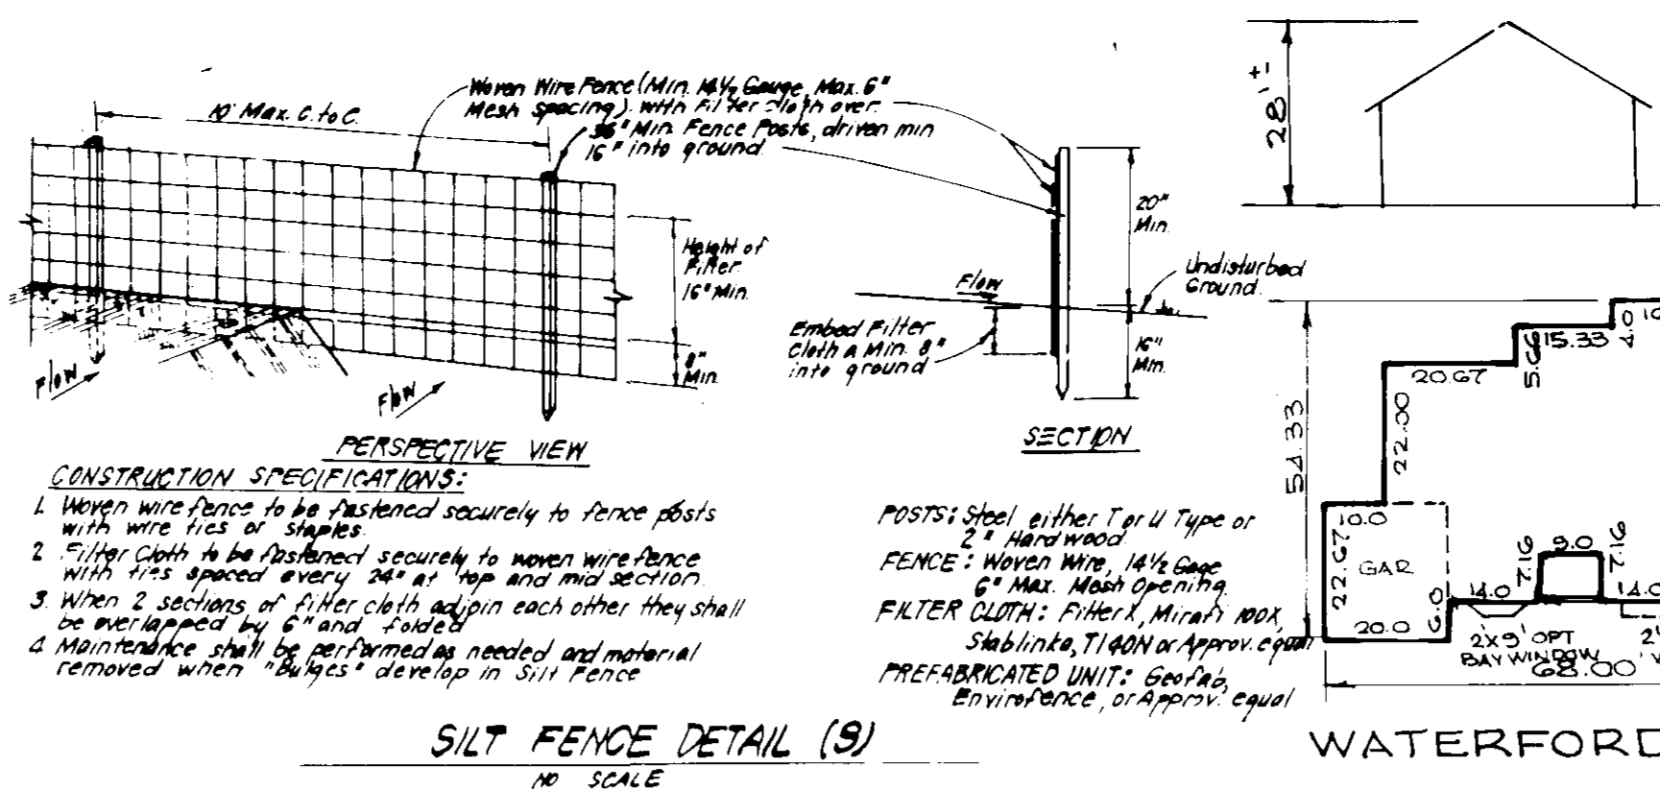 Woven Wire Fence (Min. 14½ Gauge, Max. 6"
Mesh spacing) with Filter Cloth over.
10' Max. C. to C.
36" Min. Fence Posts, driven min
16" into ground.
Height of
Filter
16" Min.
8"
Min.
Flow
Flow
PERSPECTIVE VIEW
20"
Min.
Flow
Undisturbed
Ground
Embed Filter
Cloth a Min. 8"
into ground
16"
Min.
SECTION
CONSTRUCTION SPECIFICATIONS:
1. Woven wire fence to be fastened securely to fence posts
with wire ties or staples.
2. Filter Cloth to be fastened securely to woven wire fence
with ties spaced every 24" at top and mid section.
3. When 2 sections of filter cloth adjoin each other they shall
be overlapped by 6" and folded
4. Maintenance shall be performed as needed and material
removed when "Bulges" develop in Silt Fence
POSTS: Steel either T or U Type or
2" Hardwood
FENCE: Woven Wire, 14½ Gage
6" Max. Mesh Opening
FILTER CLOTH: Filter X, Mirafi 100X,
Stablinka, T140N or Approv. equal
PREFABRICATED UNIT: Geofab,
Envirofence, or Approv. equal
SILT FENCE DETAIL (S)
NO SCALE
28'±
54.33
4.0
10
15.33
5.66
20.67
22.00
10.0
22.67
GAR
6.0
20.0
14.0
7.16
9.0
7.16
14.0
2'x9' OPT
BAY WINDOW
2'
68.00
WATERFORD